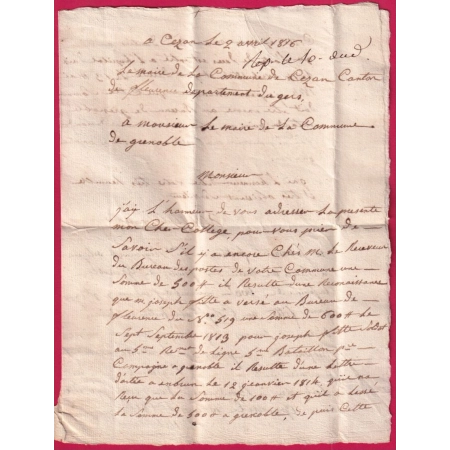 a Cezan Le 2 avril 1816
Rep. le 10. dud.
Le maire de La Commune de Cezan Canton
de fleurence departement du gers,
a monsieur Le maire de La Commune
de grenoble
Monsieur
jay L'honneur de vous adresser La presente
mon Cher College, pour vous prier de
Savoir S'il y a encore Chés M. Le Receveur
du Bureau des postes de votre Commune une
Somme de 500 ₶ il Resulte d'une Reconnaissance
que m. joseph a versé au Bureau de
fleurence du N.º 519 une Somme de 600 ₶ Le
Sept Septembre 1813 pour joseph Soldat
au 5.me Re.nt de Ligne 5.me Bataillon
Compagnie a grenoble il Resulte d'une Lettre
dattée a embrun le 12 janvier 1814, qu'il na
Reçu que La Somme de 100 ₶ et qu'il a Laissé
La Somme de 500 ₶ a grenoble, je puis Cette